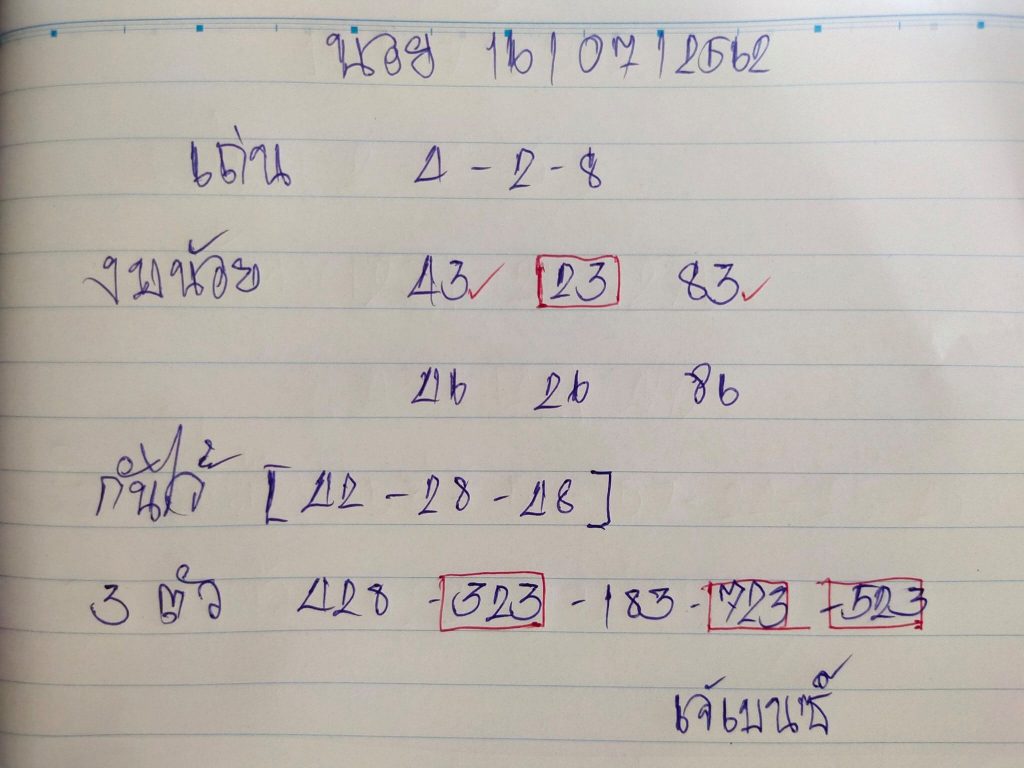 นอย 16/07/2562
เด่น 4-2-8
งบน้อย 43 23 83
46 26 86
กันไว้ [42-28-48]
3 ตัว 428-323-183-723-523
เจ้เบนซ์